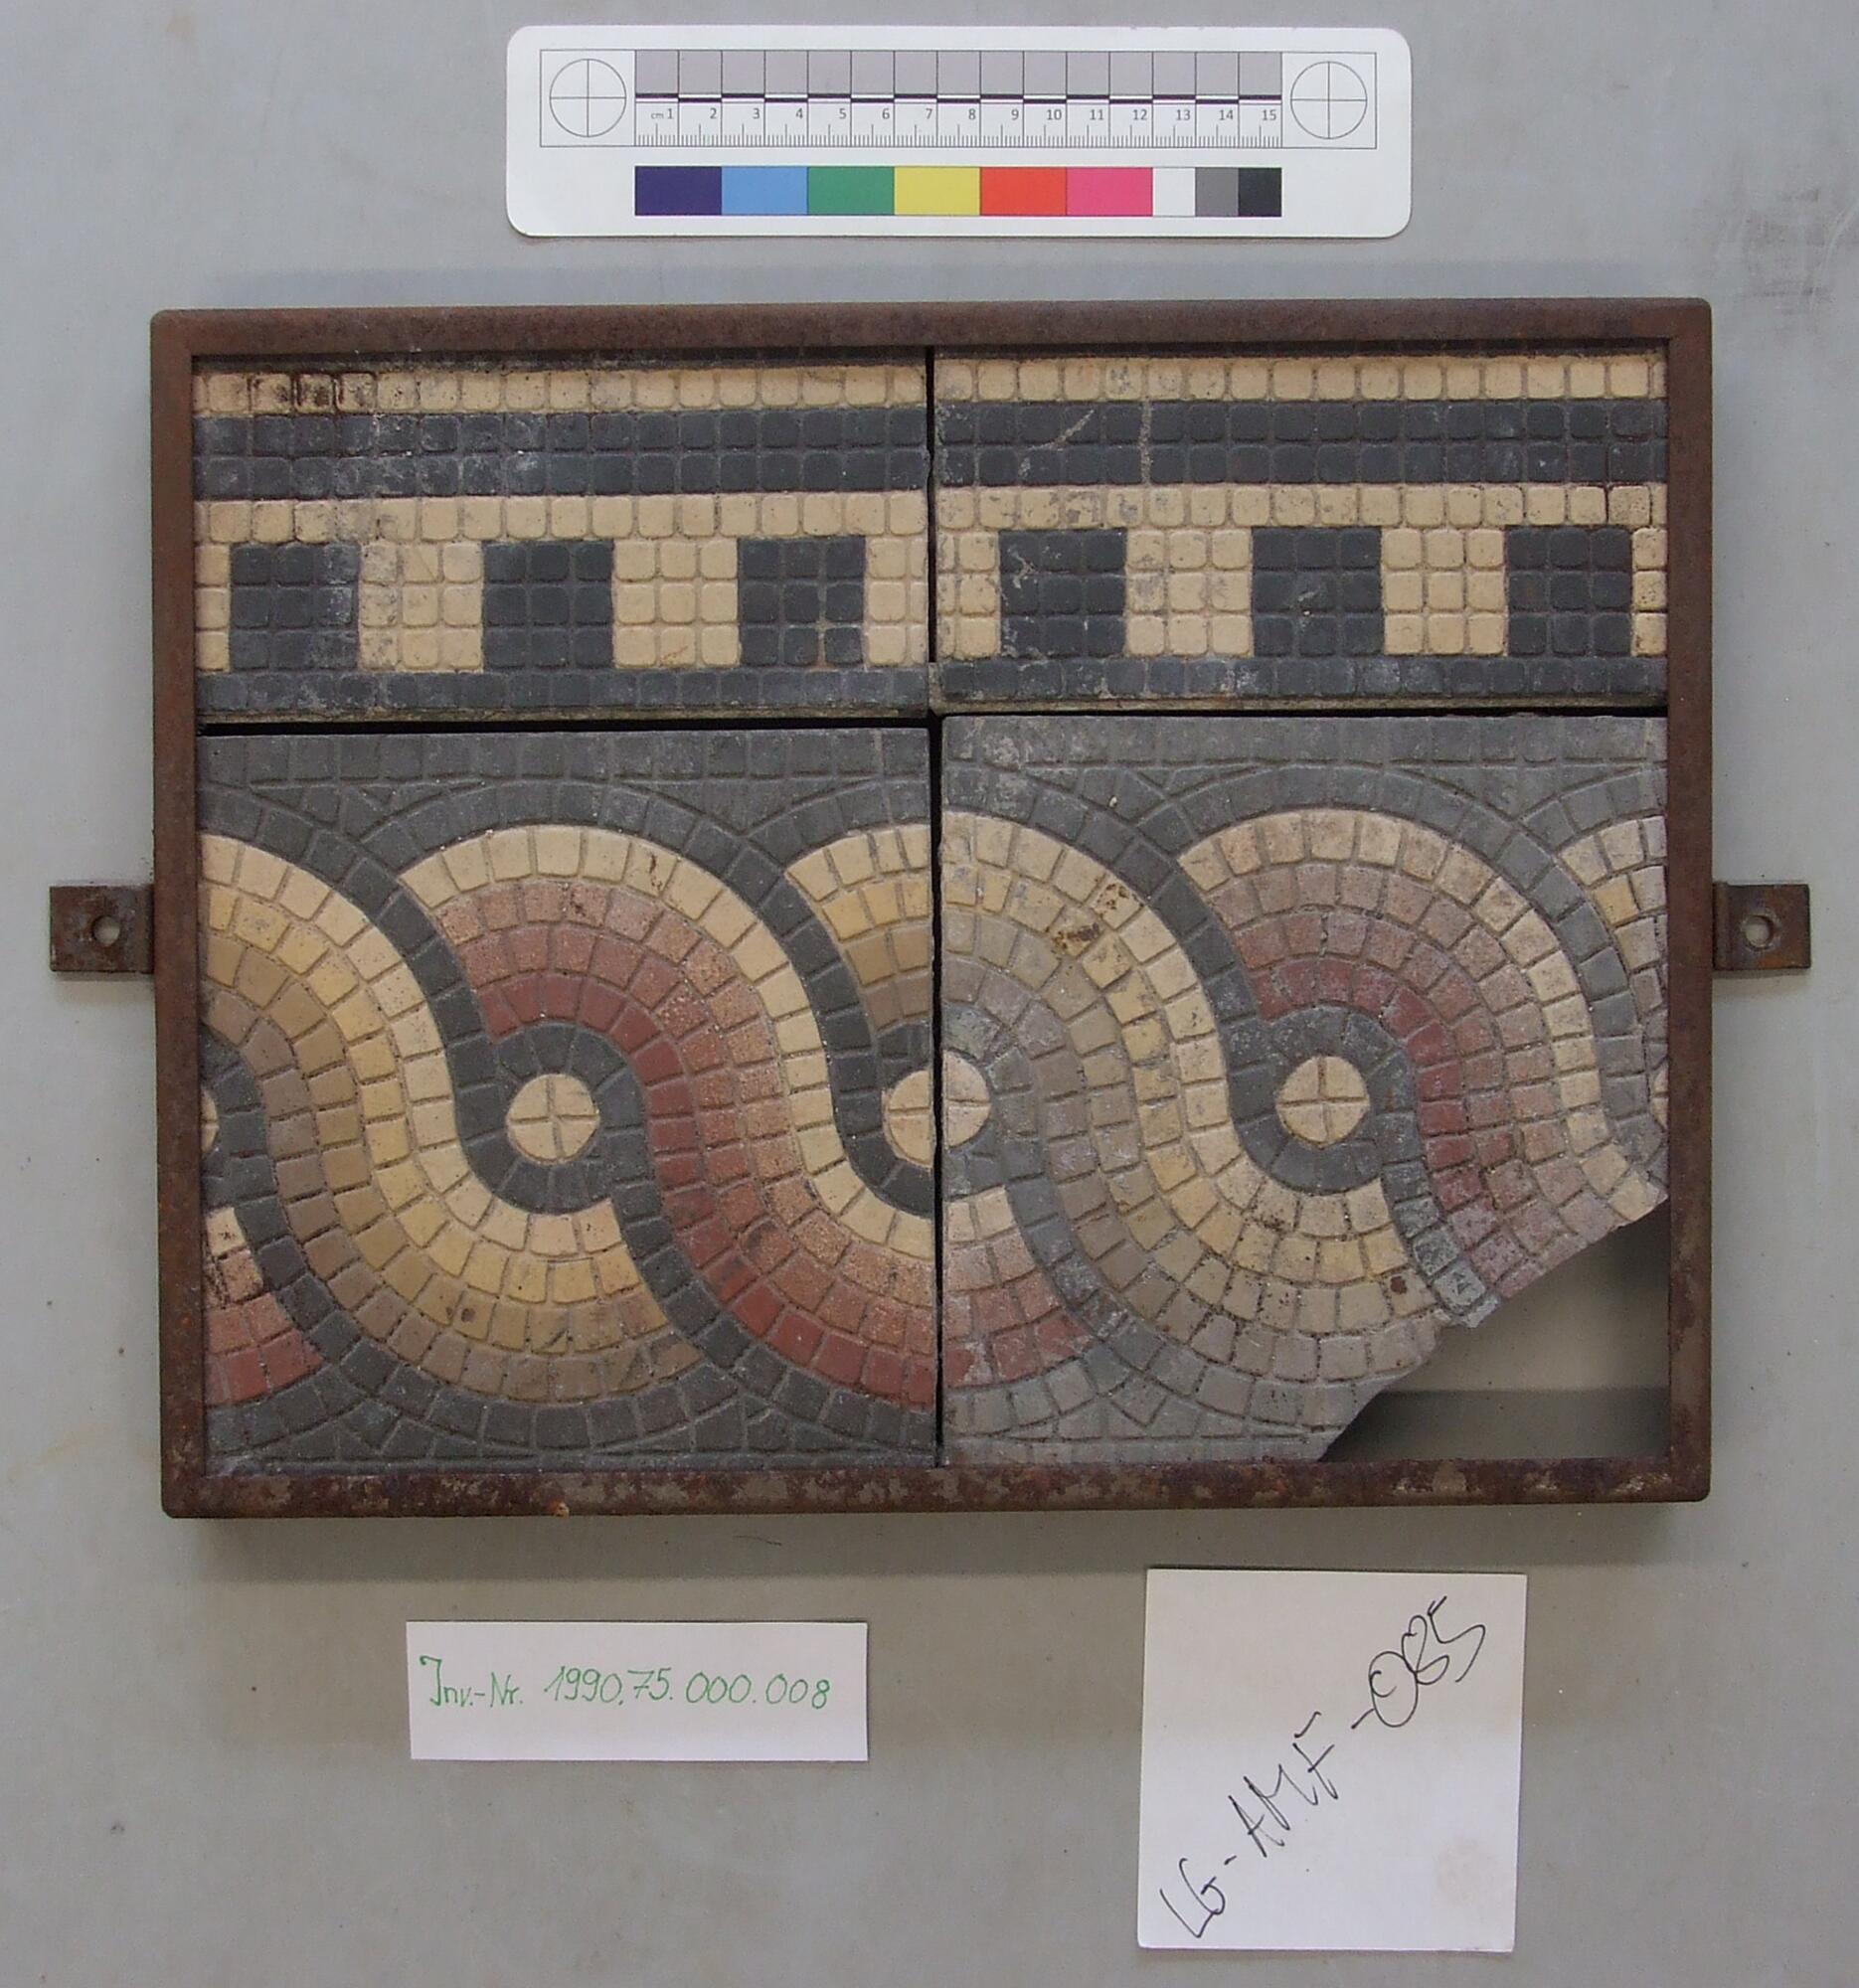 cm 1 2 3 4 5 6 7 8 9 10 11 12 13 14 15
Inv.-Nr. 1990.75.000.008
LG-AMF-085